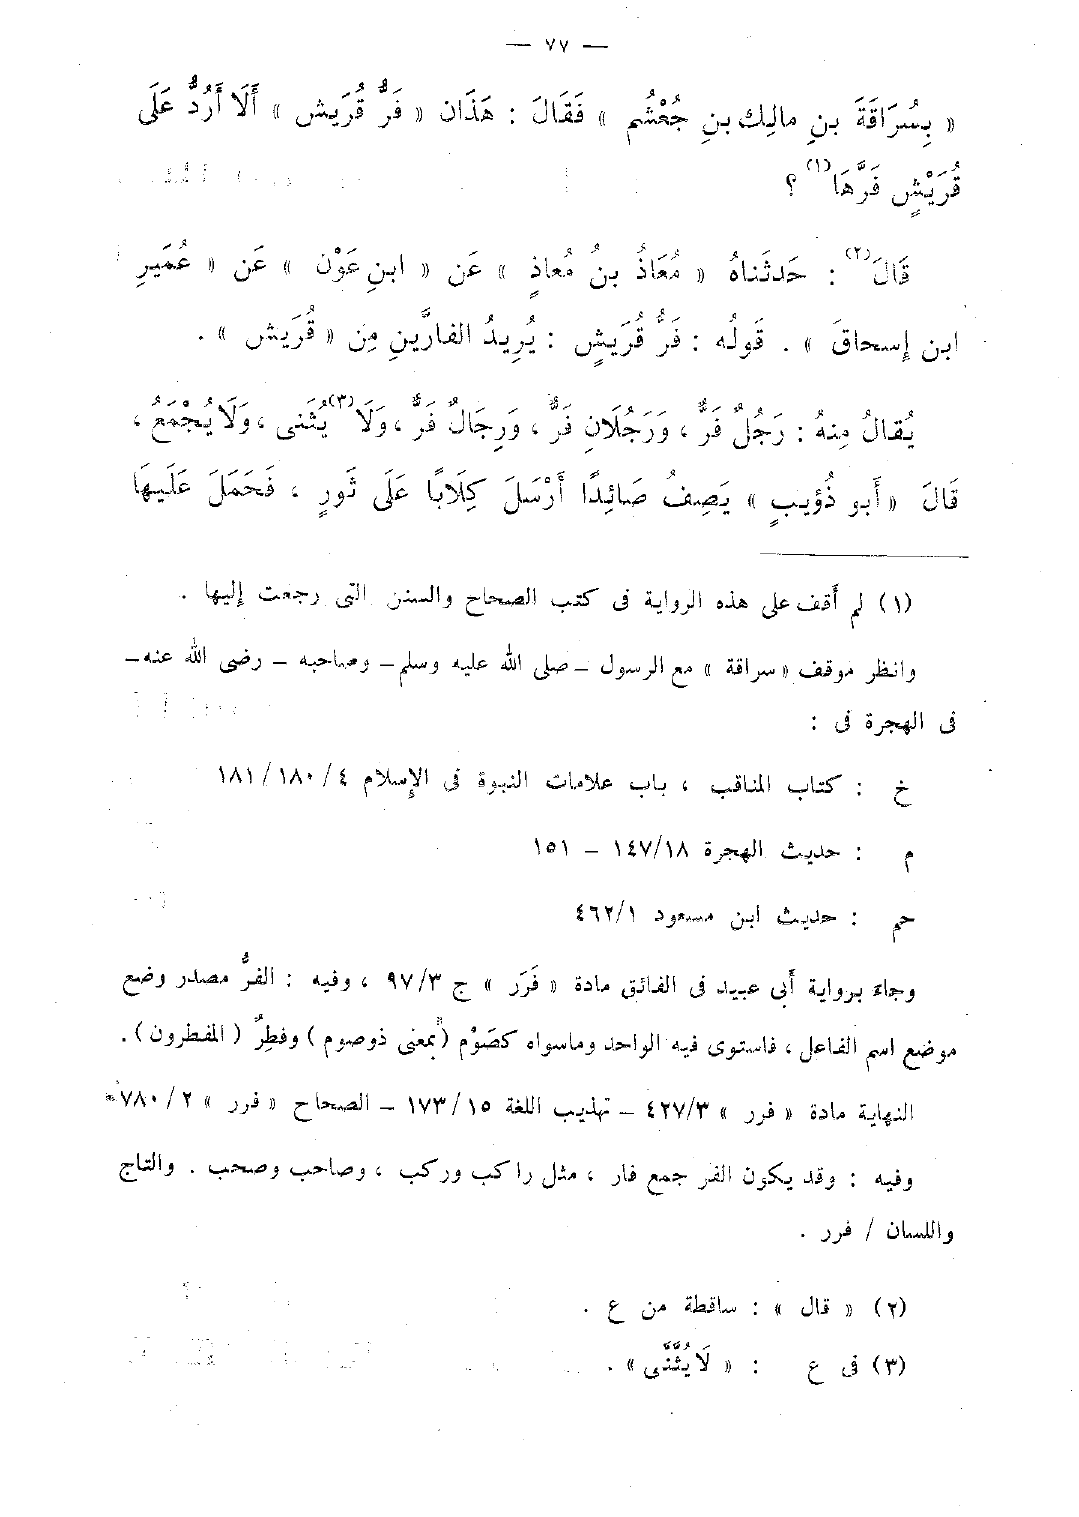 — ٧٧ —
« بِسُرَاقَةَ بنِ مالِك بنِ جُعْشُم » فَقَالَ : هَذَان « فَرُّ قُرَيش » أَلَا أَرُدُّ عَلَى
قُرَيْشٍ فَرَّهَا (١) ؟
قَالَ (٢) : حَدثَناهُ « مُعَاذُ بنُ مُعاذٍ » عَن « ابنِ عَوْن » عَن « عُمَيرِ
ابن إسحاقَ » . قَولُه : فَرُّ قُرَيشٍ : يُرِيدُ الفارَّينِ مِن « قُرَيش » .
يُقالُ مِنهُ : رَجُلٌ فَرٌّ ، وَرَجُلَانِ فَرٌّ ، وَرِجَالٌ فَرٌّ ، وَلَا (٣) يُثنى ، وَلَا يُجْمَعُ ،
قَالَ « أَبو ذُؤيبٍ » يَصِفُ صَائِدًا أَرْسَلَ كِلَابًا عَلَى ثَورٍ ، فَحَمَلَ عَلَيهَا
(١) لم أقف على هذه الرواية فى كتب الصحاح والسنن التى رجعت إليها .
وانظر موقف « سراقة » مع الرسول – صلى الله عليه وسلم – وصاحبه – رضى الله عنه –
فى الهجرة فى :
خ : كتاب المناقب ، باب علامات النبوة فى الإسلام ٤ / ١٨٠ / ١٨١
م : حديث الهجرة ١٤٧/١٨ – ١٥١
حم : حديث ابن مسعود ٤٦٢/١
وجاء برواية أبى عبيد فى الفائق مادة « فَرَر » ج ٩٧/٣ ، وفيه : الفرُّ مصدر وضع
موضع اسم الفاعل ، فاستوى فيه الواحد وماسواه كصَوْم ( بمعنى ذوصوم ) وفطِرٌ ( المفطرون ) .
النهاية مادة « فرر » ٤٢٧/٣ – تهذيب اللغة ١٧٣/١٥ – الصحاح « فرر » ٢ / ٧٨٠
وفيه : وقد يكون الفر جمع فار ، مثل راكب وركب ، وصاحب وصحب . والتاج
واللسان / فرر .
(٢) « قال » : ساقطة من ع .
(٣) فى ع : « لَا يُثَنَّى » .